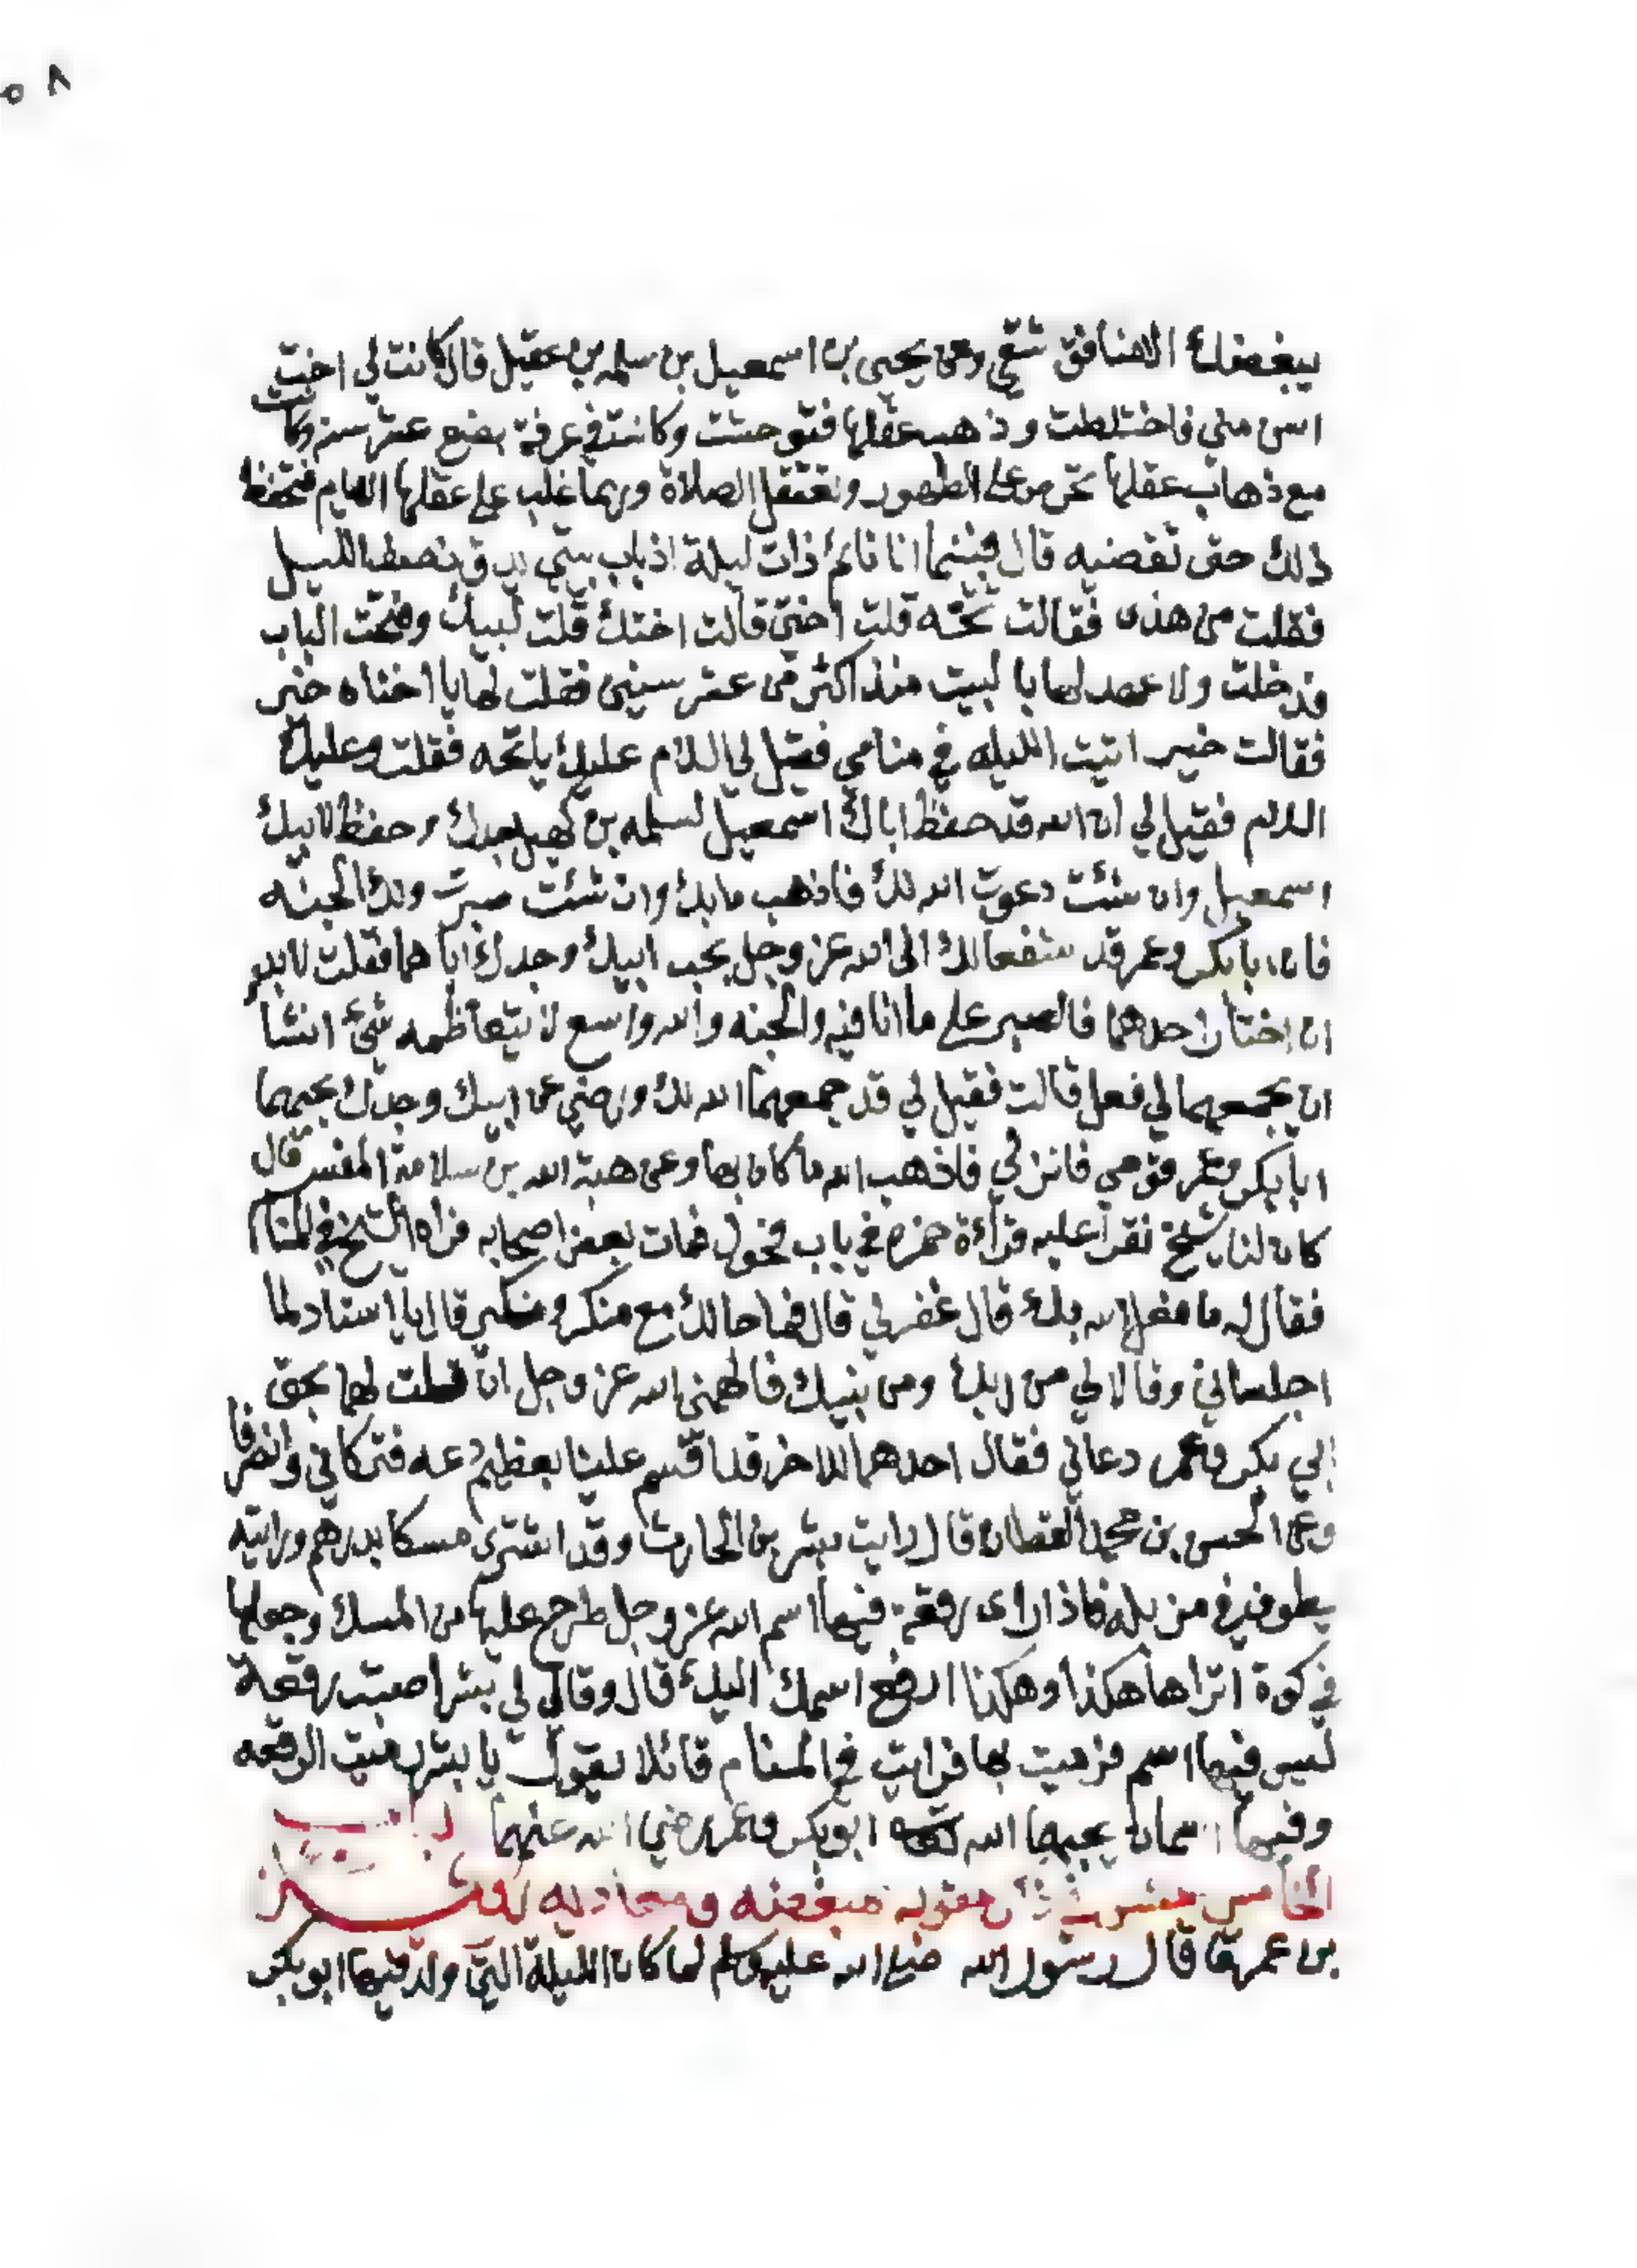 ٥٨
يبغضك الا منافق شقي وعن يحيى بن اسمعيل بن سلمه بن عقيل قال كانت لي اخت
اسن مني فاختلطت وذهب عقلها فتوحشت وكانت في غرفة بضع عشر سنه وكا
مع ذهاب عقلها تحرص على الطهور وتعقل الصلاة وربما غلب على عقلها الايام فتحفظ
ذلك حتى تقضيه قال فبينما انا نائم ذات ليلة اذ باب بيتي يدق نصف الليل
فقلت من هذه فقالت تحته قلت اختي قالت اختك قلت لبيك وفتحت الباب
فدخلت ولا عهد لها با لبيت منذ اكثر من عشر سنين فقلت لها يا اختاه خير
فقالت خير اتيت الليله في منامي فقيل لي السلام عليك يا تحه فقلت وعليك
السلام فقيل لي ان الله قد حفظ اباك اسمعيل لسلمه بن كهيل جدك وحفظ لابيك
اسمعيل وان شئت دعوت الله لك فاذهب ما بك وان شئت صبرت ولك الجنه
فان ابا بكر وعمر قد شفعا لك الى الله عز وجل بحب ابيك وجدك اياهما فقلت لا بد
ان اختار احدهما فالصبر على ما انا فيه والجنه والله واسع لا يتعاظمه شئ انشا
ان يجمعهما لي فعل قالت فقيل لي قد جمعهما الله لك ورضي عن ابيك وجدك بحبهما
ابا بكر وعمر قومي فانزلي فاذهب الله ما كان بها وعن هبة الله بن سلامة المفسر قال
كان لنا شيخ نقرا عليه قراءة حمزه في باب محول فمات بعض اصحابه فراه الشيخ في المنام
فقال له ما فعل الله بك قال غفر لي قال فما حالك مع منكر ونكير قال يا استاد لما
اجلساني وقالا لي من ربك ومن نبيك فالهمني الله عز وجل ان قلت لهما بحق
ابي بكر وعمر دعاني فقال احدهما للاخر قد اقسم علينا بعظيم دعه فتركاني وانصرفا
وعن الحسن بن محمد القطان قال رايت بشر بن الحارث وقد اشترى مسكا بدرهم ورايته
يطوف في مزبله فاذا راى رقعة فيها اسم الله عز وجل طرح عليها من المسك وجعلها
في كوة اتراها هكذا وهكذا ارفع اسمك اليك قال وقال لي بشر اصبت رقعة
ليس فيها اسم فرميت بها فرايت في المنام قائلا يقول يا بشر رميت الرقعه
وفيها اسمان يحبهما الله ابو بكر وعمر رضي الله عنهما الباب
الخامس عشر في ذكر عقوبه مبغضه ومعاديه
بن عمر قا قال رسول الله صلى الله عليه وسلم لما كان الليلة التي ولد فيها ابو بكر